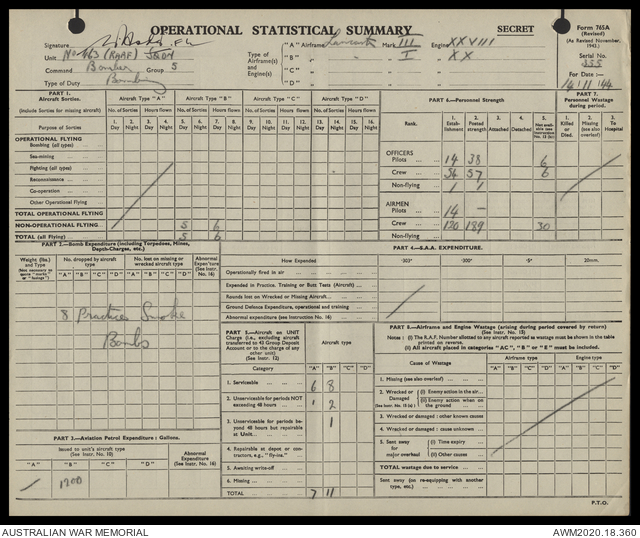 OPERATIONAL STATISTICAL SUMMARY
SECRET
Form 765A
(Revised)
(As Revised November, 1942.)
Signature
Unit No 463 (RAAF) SQDN
Command Bomber Group 5
Type of Duty Bombing
Type of Airframe(s) and Engine(s)
"A" Airframe Lancaster Mark III Engine XXVIII
"B" " " I XX
"C"
"D"
Serial No.
355
For Date :—
14/11/44
PART 1.
Aircraft Sorties.
(Include Sorties for missing aircraft)
Aircraft Type "A" Aircraft Type "B" Aircraft Type "C" Aircraft Type "D"
No. of Sorties Hours Flown No. of Sorties Hours Flown No. of Sorties Hours Flown No. of Sorties Hours Flown
Purpose of Sorties
1. Day 2. Night 3. Day 4. Night 5. Day 6. Night 7. Day 8. Night 9. Day 10. Night 11. Day 12. Night 13. Day 14. Night 15. Day 16. Night
OPERATIONAL FLYING
Bombing (all types)
Sea-mining
Fighting (all types)
Reconnaissance
Co-operation
Other Operational Flying
TOTAL OPERATIONAL FLYING
NON-OPERATIONAL FLYING 5 6
TOTAL (all Flying) 5 6
PART 6.—Personnel Strength
Rank.
1. Establishment
2. Posted strength
3. Attached
4. Detached
5. Not available (see instruction No. 13 (b))
OFFICERS
Pilots 14 38 6
Crew 54 57 6
Non-flying 1 1
AIRMEN
Pilots 14 —
Crew 120 189 30
Non-flying
PART 7.
Personnel Wastage during period.
1. Killed or Died.
2. Missing (see also overleaf)
3. To Hospital
PART 2.—Bomb Expenditure (including Torpedoes, Mines, Depth-Charges, etc.)
Weight (lbs.) and Type
No. dropped by aircraft type
No. lost on missing or wrecked aircraft type
Abnormal Expen'ture (See Instr. 16)
"A" "B" "C" "D" "A" "B" "C" "D"
8 Practice Smoke
Bombs
PART 3.—Aviation Petrol Expenditure : Gallons.
Issued to unit's aircraft type
(See Instr. No. 10)
Abnormal Expenditure
(See Instr. No. 16)
"A" "B" "C" "D"
1200
PART 4.—S.A.A. EXPENDITURE.
How Expended ·303" ·300" ·5" 20mm.
Operationally fired in air
Expended in Practice, Training or Butt Tests (Aircraft)
Rounds lost on Wrecked or Missing Aircraft
Ground Defence Expenditure, operational and training
Abnormal expenditure (see Instruction No. 16)
PART 5.—Aircraft on UNIT Charge (i.e., excluding aircraft transferred to 43 Group Deposit Account or to the charge of any other unit)
(See Instr. 12)
Aircraft type
Category "A" "B" "C" "D"
1. Serviceable 6 8
2. Unserviceable for periods NOT exceeding 48 hours 1 2
3. Unserviceable for periods beyond 48 hours but repairable at Unit 1
4. Repairable at depot or contractors, e.g., "fly-ins."
5. Awaiting write-off
6. Missing
TOTAL 7 11
PART 8.—Airframe and Engine Wastage (arising during period covered by return)
(See Instr. No. 15)
Notes : (i) The R.A.F. Number allotted to any aircraft reported as wastage must be shown in the table printed on reverse.
(ii) All aircraft placed in categories "AC", "B" or "E" must be included.
Cause of Wastage
Airframe type Engine type
"A" "B" "C" "D" "A" "B" "C" "D"
1. Missing (see also overleaf)
2. Wrecked or Damaged (i) Enemy action in the air
(See Instr. No. 15 (a)) (ii) Enemy action when on the ground
3. Wrecked or damaged : other known causes
4. Wrecked or damaged : unknown causes
5. Sent away for major overhaul (i) Time expiry
(ii) Other causes
TOTAL wastage due to service
Sent away (on re-equipping with another type, etc.)
P.T.O.
AUSTRALIAN WAR MEMORIAL
AWM2020.18.360